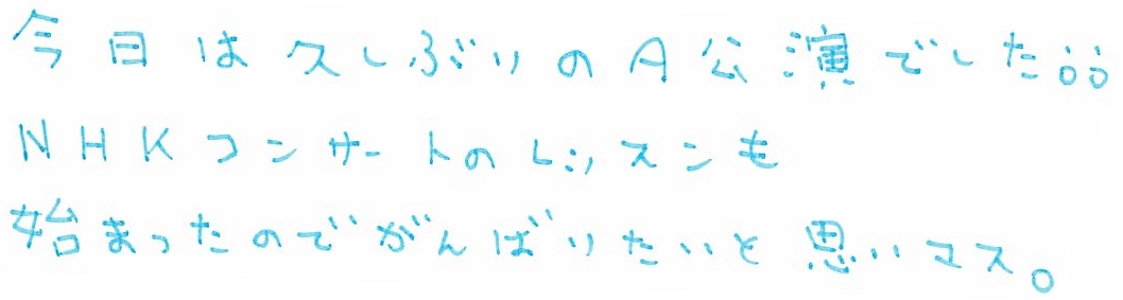 今日は久しぶりのA公演でした!!
NHKコンサートのレッスンも
始まったのでがんばりたいと思いマス。